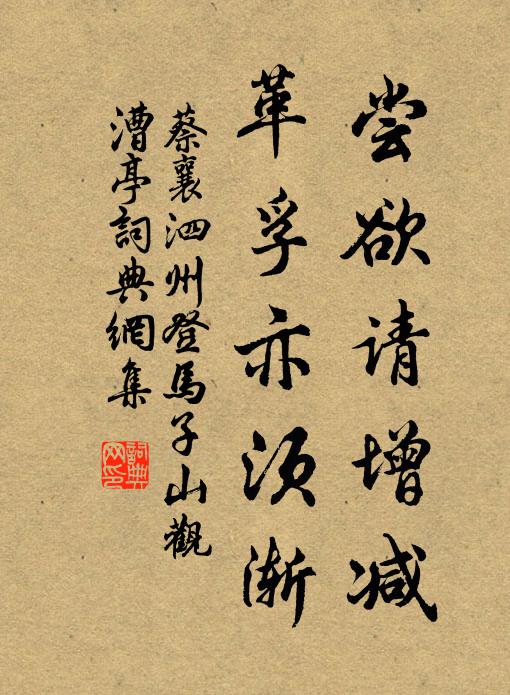 尝欲请增减
革孚亦须渐
蔡襄泗州登馬子山觀
漕亭詞典網集
詞典网印